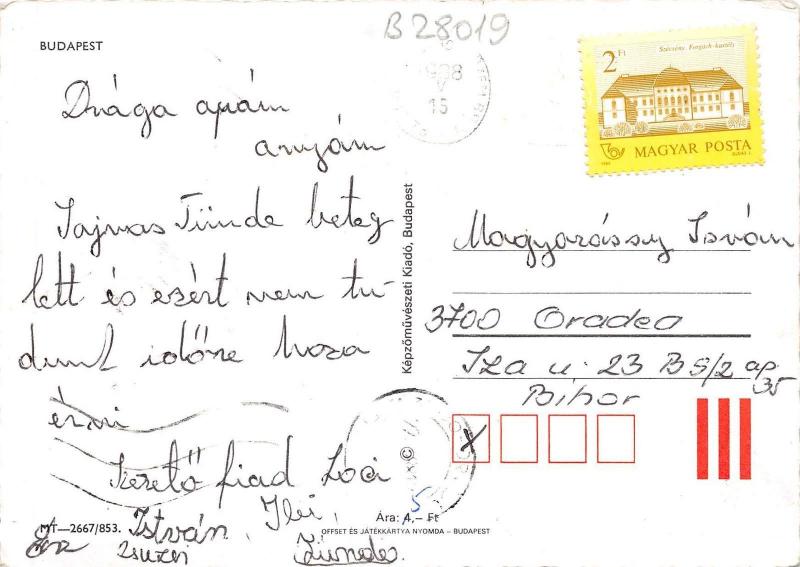 B28019
BUDAPEST
Drága apám
anyám
Sajnos Tünde beteg
lett és ezért nem tu-
dunk időre haza
érni
Szerető fiad Loci
István, Ili,
Zsuzsi Tünde.
MT—2667/853.
Ára: 4,– Ft
5
OFFSET ÉS JÁTÉKKÁRTYA NYOMDA – BUDAPEST
Képzőművészeti Kiadó, Budapest
2 Ft
Szécsény, Forgách-kastély
MAGYAR POSTA
15
Magyarássy István
3700 Oradea
Iza u. 23 BS/2 ap
35
Bihor
X